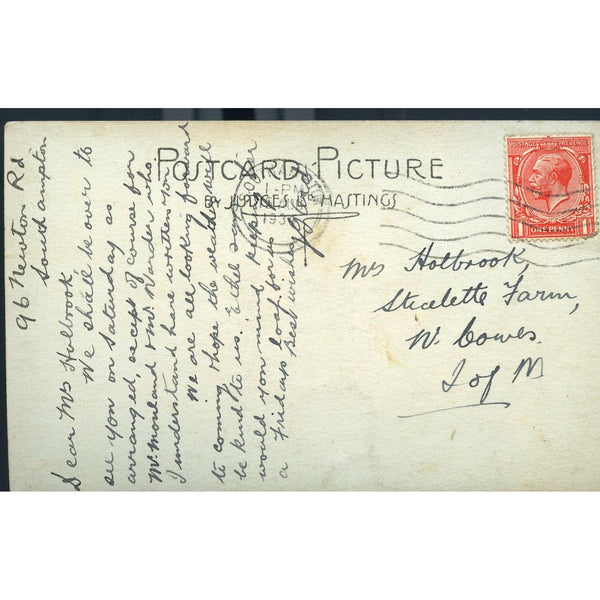 96 Newton Rd
Southampton
Dear Mrs Holbrook
We shall be over to
see you on Saturday as
arranged, except of course for
Mr. Morland & Mr. Warder who
I understand have written you
We are all looking forward
to coming & hope the weather will
be kind to us. Ethel says
would you mind keeping
a loaf for us
Fridays
Best wishes
POSTCARD PICTURE
BY JUDGES LD HASTINGS
1-PM
193
POSTAGE REVENUE
ONE PENNY
Mrs Holbrook,
Sticelette Farm,
W. Cowes.
I of W